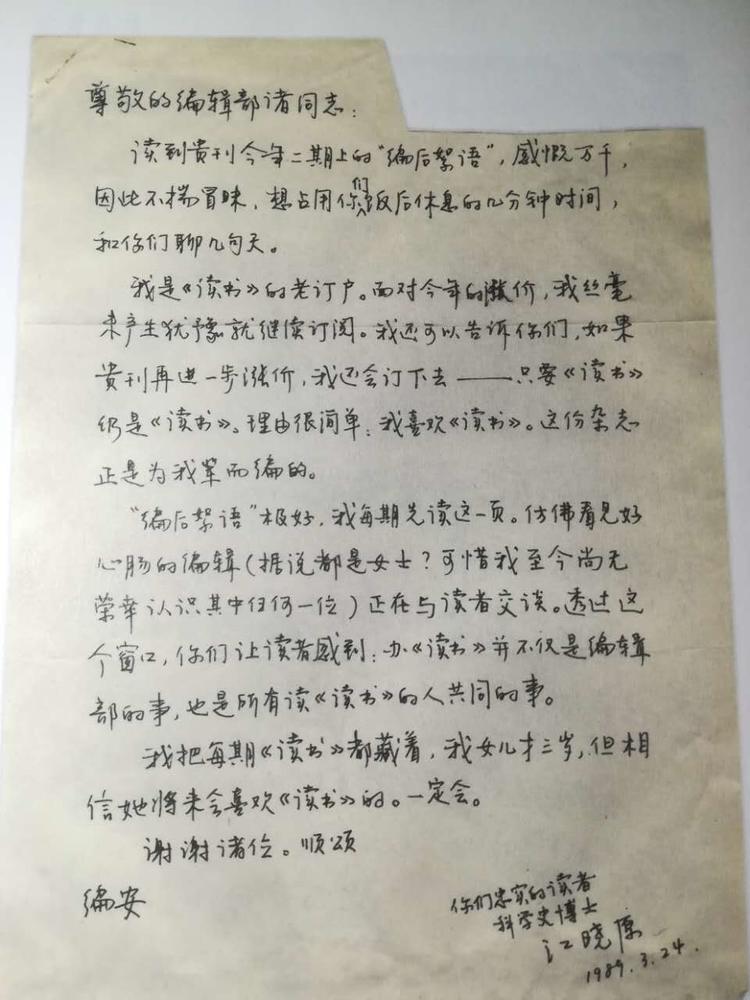 尊敬的编辑部诸同志：
读到贵刊今年二期上的“编后絮语”，感慨万千，
因此不揣冒昧，想占用你们饭后休息的几分钟时间，
和你们聊几句天。
我是《读书》的老订户。面对今年的涨价，我丝毫
未产生犹豫就继续订阅。我还可以告诉你们，如果
贵刊再进一步涨价，我还会订下去——只要《读书》
仍是《读书》。理由很简单：我喜欢《读书》。这份杂志
正是为我辈而编的。
“编后絮语”极好，我每期先读这一页。仿佛看见好
心肠的编辑（据说都是女士？可惜我至今尚无
荣幸认识其中任何一位）正在与读者交谈。透过这
个窗口，你们让读者感到：办《读书》并不仅是编辑
部的事，也是所有读《读书》的人共同的事。
我把每期《读书》都藏着，我女儿才三岁，但相
信她将来会喜欢《读书》的。一定会。
谢谢诸位。顺颂
编安
你们忠实的读者
科学史博士
江晓原
1989.3.24.